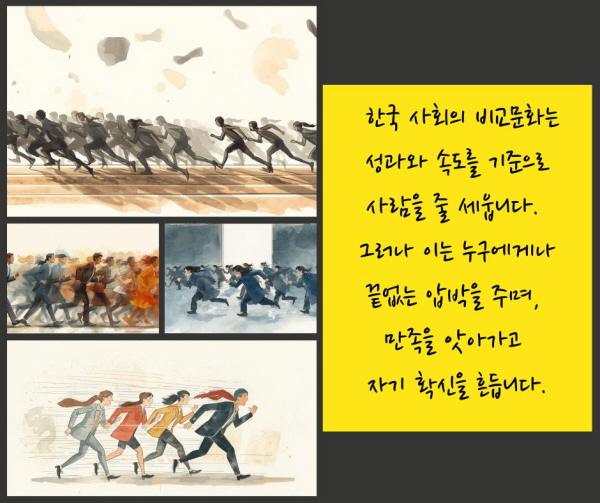 한국 사회의 비교문화는
성과와 속도를 기준으로
사람을 줄 세웁니다.
그러나 이는 누구에게나
끝없는 압박을 주며,
만족을 앗아가고
자기 확신을 흔듭니다.